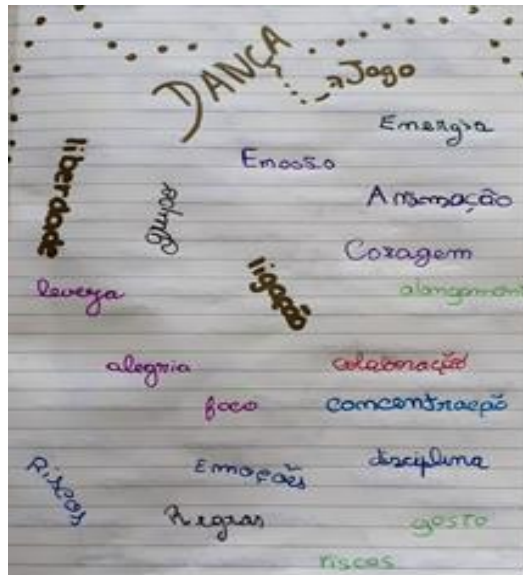 DANÇA
Jogo
Energia
liberdade
Animação
Coragem
ligação
leveza
alongament
alegria
colaboração
foco
concentração
Riscos
Emoções
disciplina
Regras
gosto
riscos